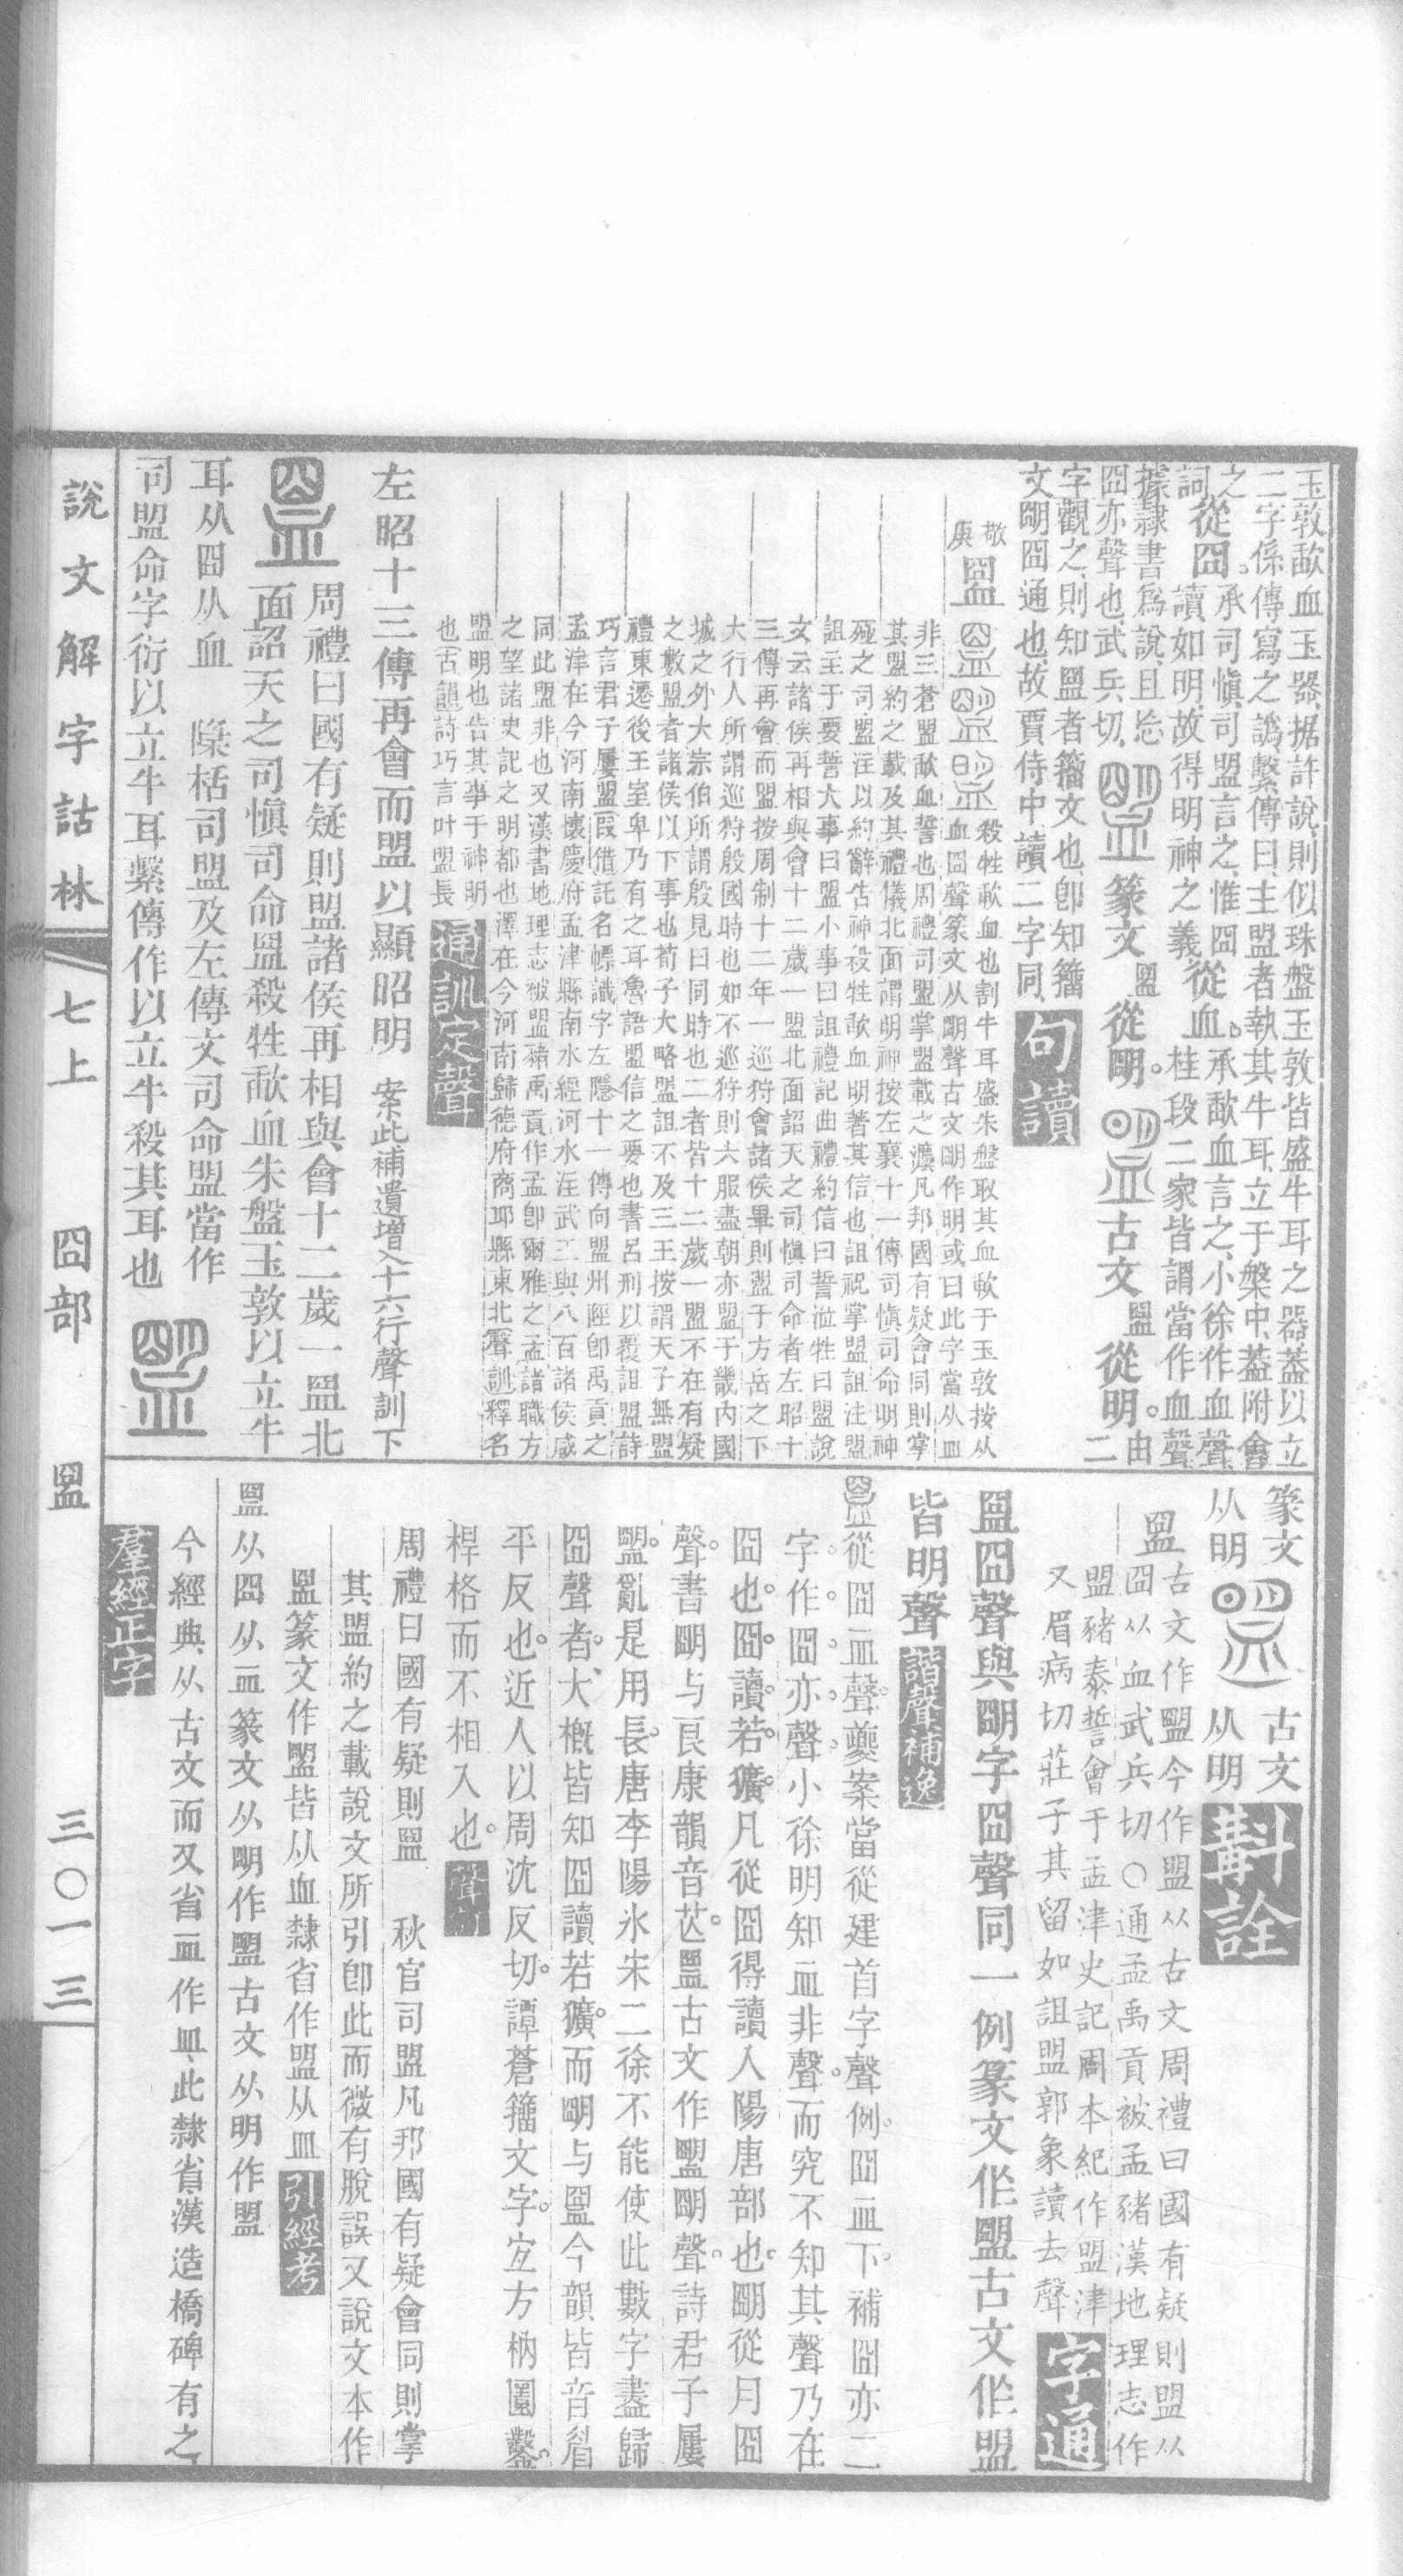 玉敦歃血玉器据許說則似珠盤玉敦皆盛牛耳之器葢以立
二字係傳寫之譌繫傳曰主盟者執其牛耳立于槃中葢附會
之詞從囧。承司愼司盟言之惟囧讀如明故得明神之義從血。承歃血言之小徐作血聲桂段二家皆謂當作血聲
據隸書爲說且㤀囧亦聲也武兵切篆文𥂗從朙。古文𥂗從明。由二
字觀之則知盟者籀文也卽知籀
文朙囧通也故賈侍中讀二字同 句讀
敬庚
𥁰 殺牲歃血也割牛耳盛朱盤取其血歃于玉敦按从
血囧聲篆文从朙聲古文朙作明或曰此字當从皿
非三蒼盟歃血誓也周禮司盟掌盟載之灋凡邦國有疑會同則掌
其盟約之載及其禮儀北面謂明神按左襄十一傳司愼司命明神
殛之司盟注以約辭告神殺牲歃血明著其信也詛祝掌盟詛注盟
詛主于要誓大事曰盟小事曰詛禮記曲禮約信曰誓涖牲曰盟說
文云諸侯再相與會十二歲一盟北面詔天之司愼司命者左昭十
三傳再會而盟按周制十二年一巡狩會諸侯畢則盟于方岳之下
大行人所謂巡狩殷國時也如不巡狩則六服盡朝亦盟于畿內國
城之外大宗伯所謂殷見曰同時也二者皆十二歲一盟不在有疑
之數盟者諸侯以下事也荀子大略盟詛不及三王按謂天子無盟
禮東遷後王室卑乃有之耳魯語盟信之要也書呂刑以覆詛盟詩
巧言君子屢盟叚借託名幖識字左隱十一傳向盟州陘卽禹貢之
孟津在今河南懷慶府孟津縣南水經河水注武王與八百諸侯咸
同此盟非也又漢書地理志被盟豬禹貢作孟卽爾雅之孟諸職方
之望諸史記之明都也澤在今河南歸德府商邱縣東北聲訓釋名
盟明也告其事于神明
也古韻詩巧言叶盟長 通訓定聲
左昭十三傳再會而盟以顯昭明 案此補遺增入十六行聲訓下
周禮曰國有疑則盟諸侯再相與會十二歲一𥁰北
面詔天之司愼司命𥁰殺牲歃血朱盤玉敦以立牛
耳从囧从血 隱栝司盟及左傳文司命盟當作
司盟命字衍以立牛耳繫傳作以立牛殺其耳也
篆文从明 古文从明 斠詮
𥁰 古文作盟今作盟从古文周禮曰國有疑則盟从
囧从血武兵切〇通孟禹貢被孟豬漢地理志作
盟豬泰誓會于孟津史記周本紀作盟津
又眉病切莊子其留如詛盟郭象讀去聲 字通
𥁰囧聲與朙字囧聲同一例篆文作𥂗古文作盟
皆明聲 諧聲補逸
從囧皿聲夔案當從建首字聲例囧皿下補囧亦二
字作囧亦聲小徐明知皿非聲而究不知其聲乃在
囧也囧讀若獷凡從囧得讀入陽唐部也朙從月囧
聲書朙与良康韻音𦬆𥁰古文作𥂗朙聲詩君子屢
盟亂是用長唐李陽冰宋二徐不能使此數字盡歸
囧聲者大槪皆知囧讀若獷而朙与𥁰今韻皆音省
平反也近人以周沈反切譚蒼籀文字宐方枘圜鑿
桿格而不相入也 聲訂
周禮曰國有疑則𥁰 秋官司盟凡邦國有疑會同則掌
其盟約之載說文所引卽此而微有脫誤又說文本作
𥁰篆文作𥂗皆从血隸省作盟从皿 引經考
𥁰从囧从皿篆文从朙作𥂗古文从明作盟
今經典从古文而又省血作皿此隸省漢造橋碑有之
羣經正字
說文解字詁林 七上 囧部 𥁰 三〇一三